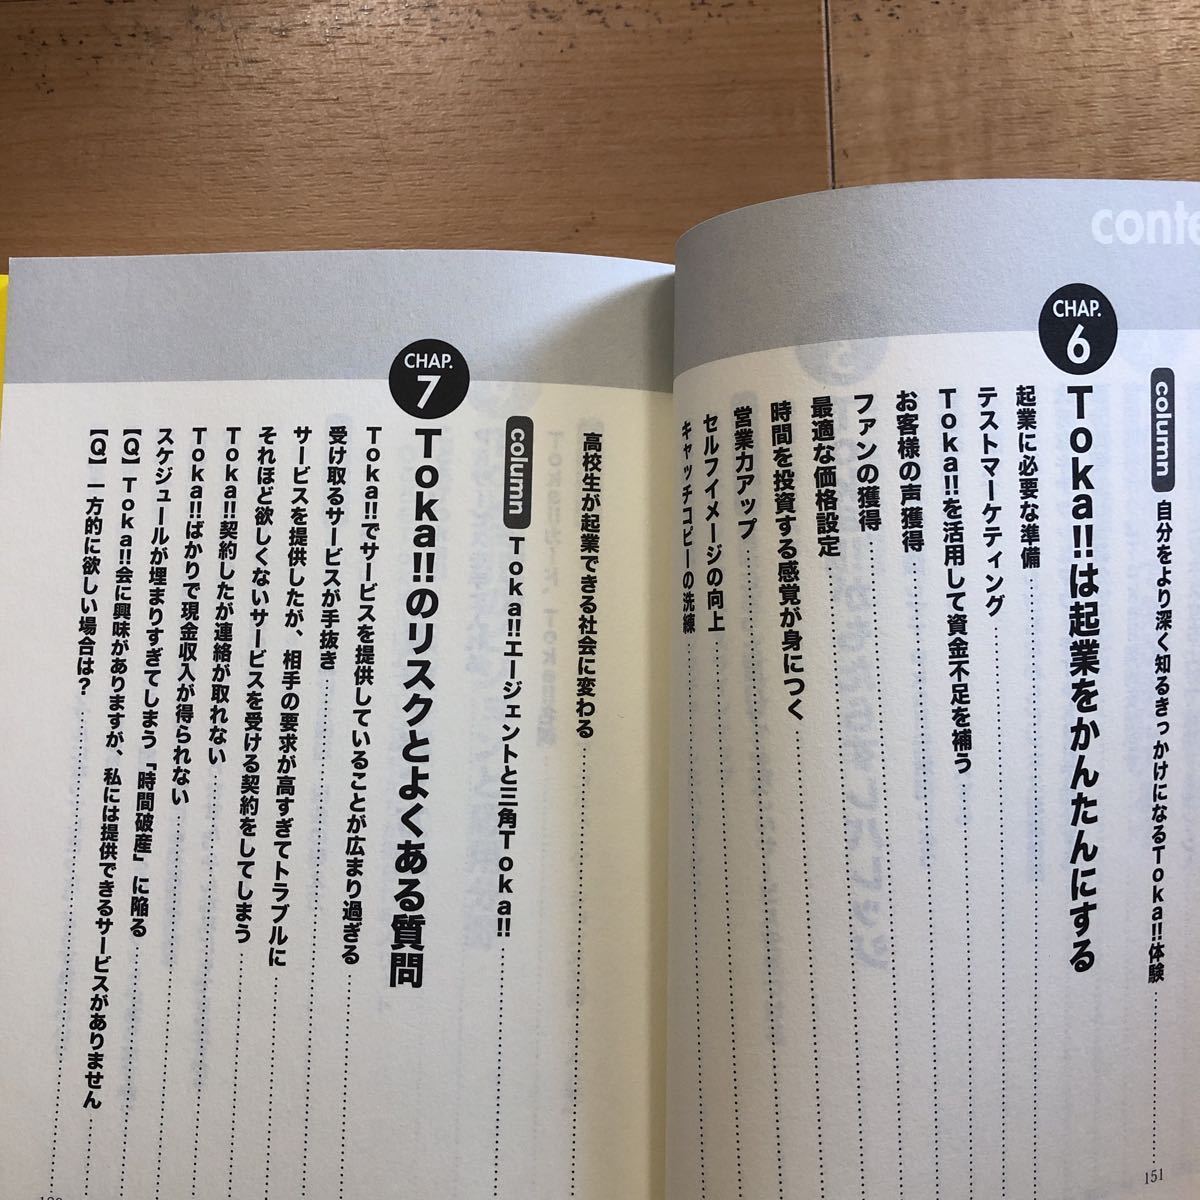 conte
column 自分をより深く知るきっかけになるToka!!体験
151
CHAP.
6
Toka!!は起業をかんたんにする
起業に必要な準備
テストマーケティング
Toka!!を活用して資金不足を補う
お客様の声獲得
ファンの獲得
最適な価格設定
時間を投資する感覚が身につく
営業力アップ
セルフイメージの向上
キャッチコピーの洗練
高校生が起業できる社会に変わる
column Toka!!エージェントと三角Toka!!
CHAP.
7
Toka!!のリスクとよくある質問
Toka!!でサービスを提供していることが広まり過ぎる
受け取るサービスが手抜き
サービスを提供したが、相手の要求が高すぎてトラブルに
それほど欲しくないサービスを受ける契約をしてしまう
Toka!!契約したが連絡が取れない
Toka!!ばかりで現金収入が得られない
スケジュールが埋まりすぎてしまう「時間破産」に陥る
【Q】Toka!!会に興味がありますが、私には提供できるサービスがありません
【Q】一方的に欲しい場合は?